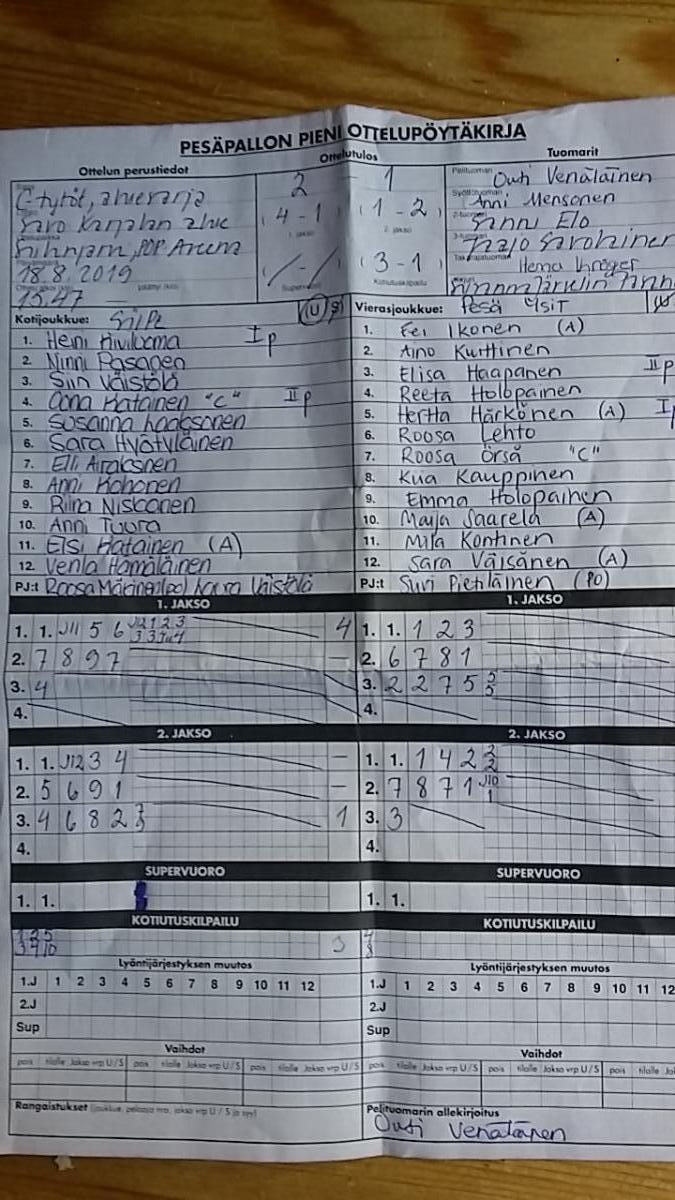 PESÄPALLON PIENI OTTELUPÖYTÄKIRJA
Ottelun perustiedot
Ottelutulos
Tuomarit
C-tytöt, aluesarja
Savo Karjalan alue
Siilinjärvi, POP Areena
18.8.2019
15.47
2 - 1
( 4 - 1 ) ( 1 - 2 )
1. jakso 2. jakso
/ - / ( 3 - 1 )
Kotiutuskilpailu
Pelituomari Outi Venäläinen
Syöttötuomari Anni Mensonen
2-tuomari Sanni Elo
3-tuomari Kajo Savolainen
Takarajatuomari Hema Kröger
Kotijoukkue: SiiPe (U) S
1. Heini Hiviluoma I p
2. Ninni Pasanen
3. Siiri Väistölä
4. Oona Hatainen "C" II p
5. Susanna Laaksonen
6. Sara Hyötyläinen
7. Elli Airaksinen
8. Anni Kohonen
9. Riina Niskanen
10. Anni Tuura
11. Elsi Hatainen (A)
12. Venla Hämäläinen
PJ:t Roosa Mäkinen (po) Laura Väistölä
Vierasjoukkue: Pesä Ysit
1. Eei Ikonen (A)
2. Aino Kurttinen
3. Elisa Haapanen II p
4. Reeta Holopainen
5. Hertta Härkönen (A) I p
6. Roosa Lehto
7. Roosa Örså "C"
8. Kiia Kauppinen
9. Emma Holopainen
10. Maija Saarela (A)
11. Mila Kontinen
12. Sara Väisänen (A)
PJ:t Suvi Pietiläinen (PO)
1. JAKSO
1. 1. J11 5 6 J2 1 2 3 3 3 J4 4 4
2. 7 8 9 7 -
3. 4
4.
1. JAKSO
1. 1. 1 2 3
2. 6 7 8 1
3. 2 2 7 5 3 5
4.
2. JAKSO
1. 1. J12 3 4 -
2. 5 6 9 1 -
3. 4 6 8 2 7 3 1
4.
2. JAKSO
1. 1. 1 4 2 3 2
2. 7 8 7 1 J10 1
3. 3
4.
SUPERVUORO
1. 1.
SUPERVUORO
1. 1.
KOTIUTUSKILPAILU
3
KOTIUTUSKILPAILU
Lyöntijärjestyksen muutos
1.J 1 2 3 4 5 6 7 8 9 10 11 12
2.J
Sup
Lyöntijärjestyksen muutos
1.J 1 2 3 4 5 6 7 8 9 10 11 12
2.J
Sup
Vaihdot
pois tilalle Jakso vrp U/S pois tilalle Jakso vrp U/S pois tilalle Jakso vrp U/S
Vaihdot
pois tilalle Jakso vrp U/S pois tilalle Jakso vrp U/S pois tilalle
Rangaistukset (joukkue, pelaaja nro, jakso vrp U / S ja syy)
Pelituomarin allekirjoitus
Outi Venäläinen